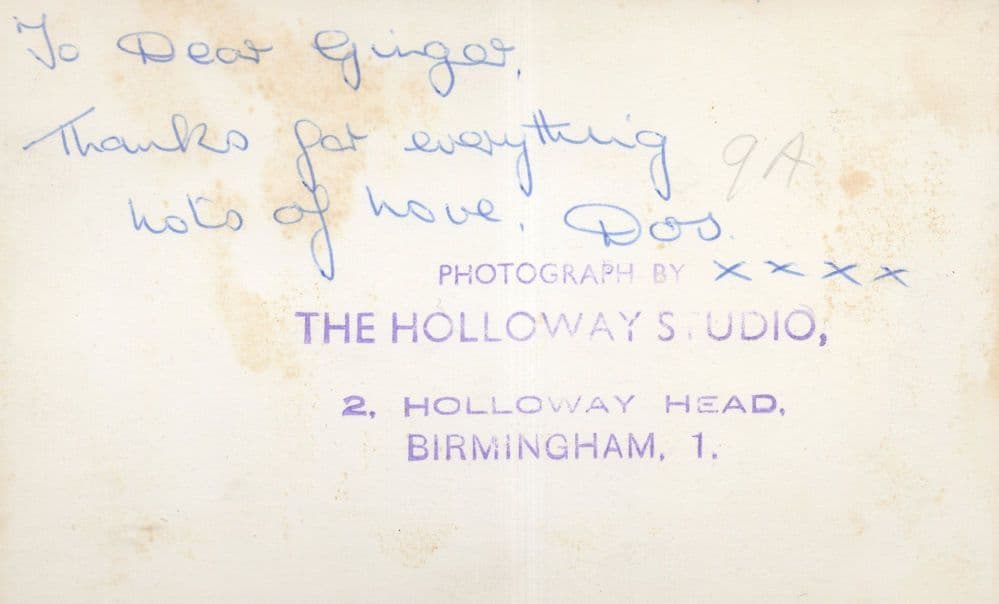 To Dear Ginger,
Thanks for everything 9A
Lots of Love. Dos.
xxxx
PHOTOGRAPH BY
THE HOLLOWAY STUDIO,
2, HOLLOWAY HEAD,
BIRMINGHAM, 1.